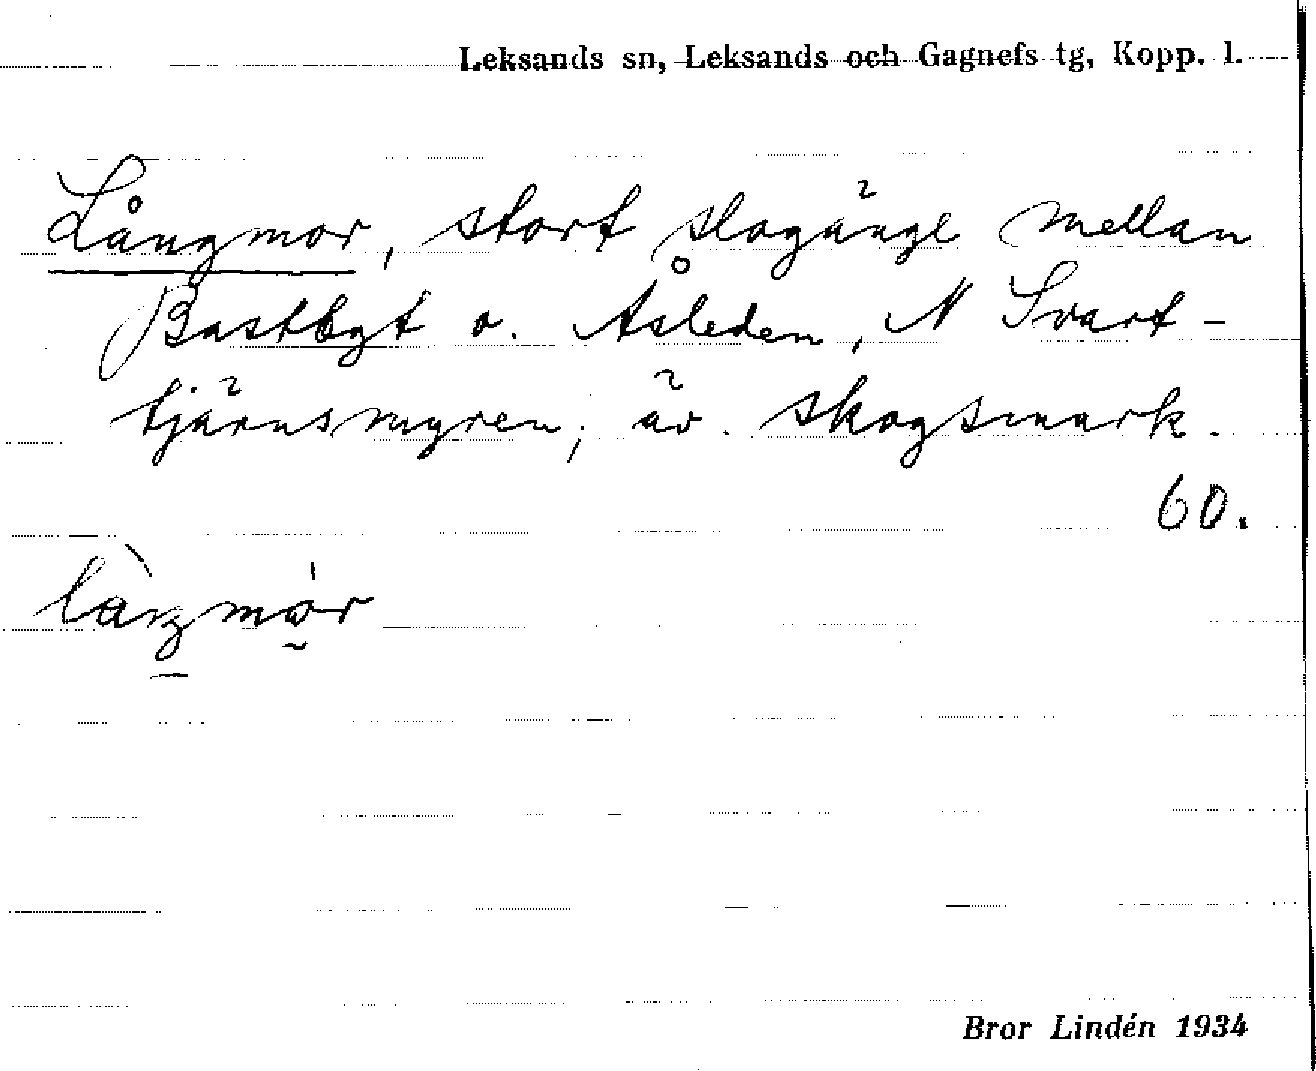 Leksands sn, Leksands och Gagnefs tg, Kopp. l.
Långmor, stort slogänge mellan
Bastbgt o. Åsleden, N Svart-
tjärnsmyren; äv. skogsmark.
60.
Bror Lindén 1934